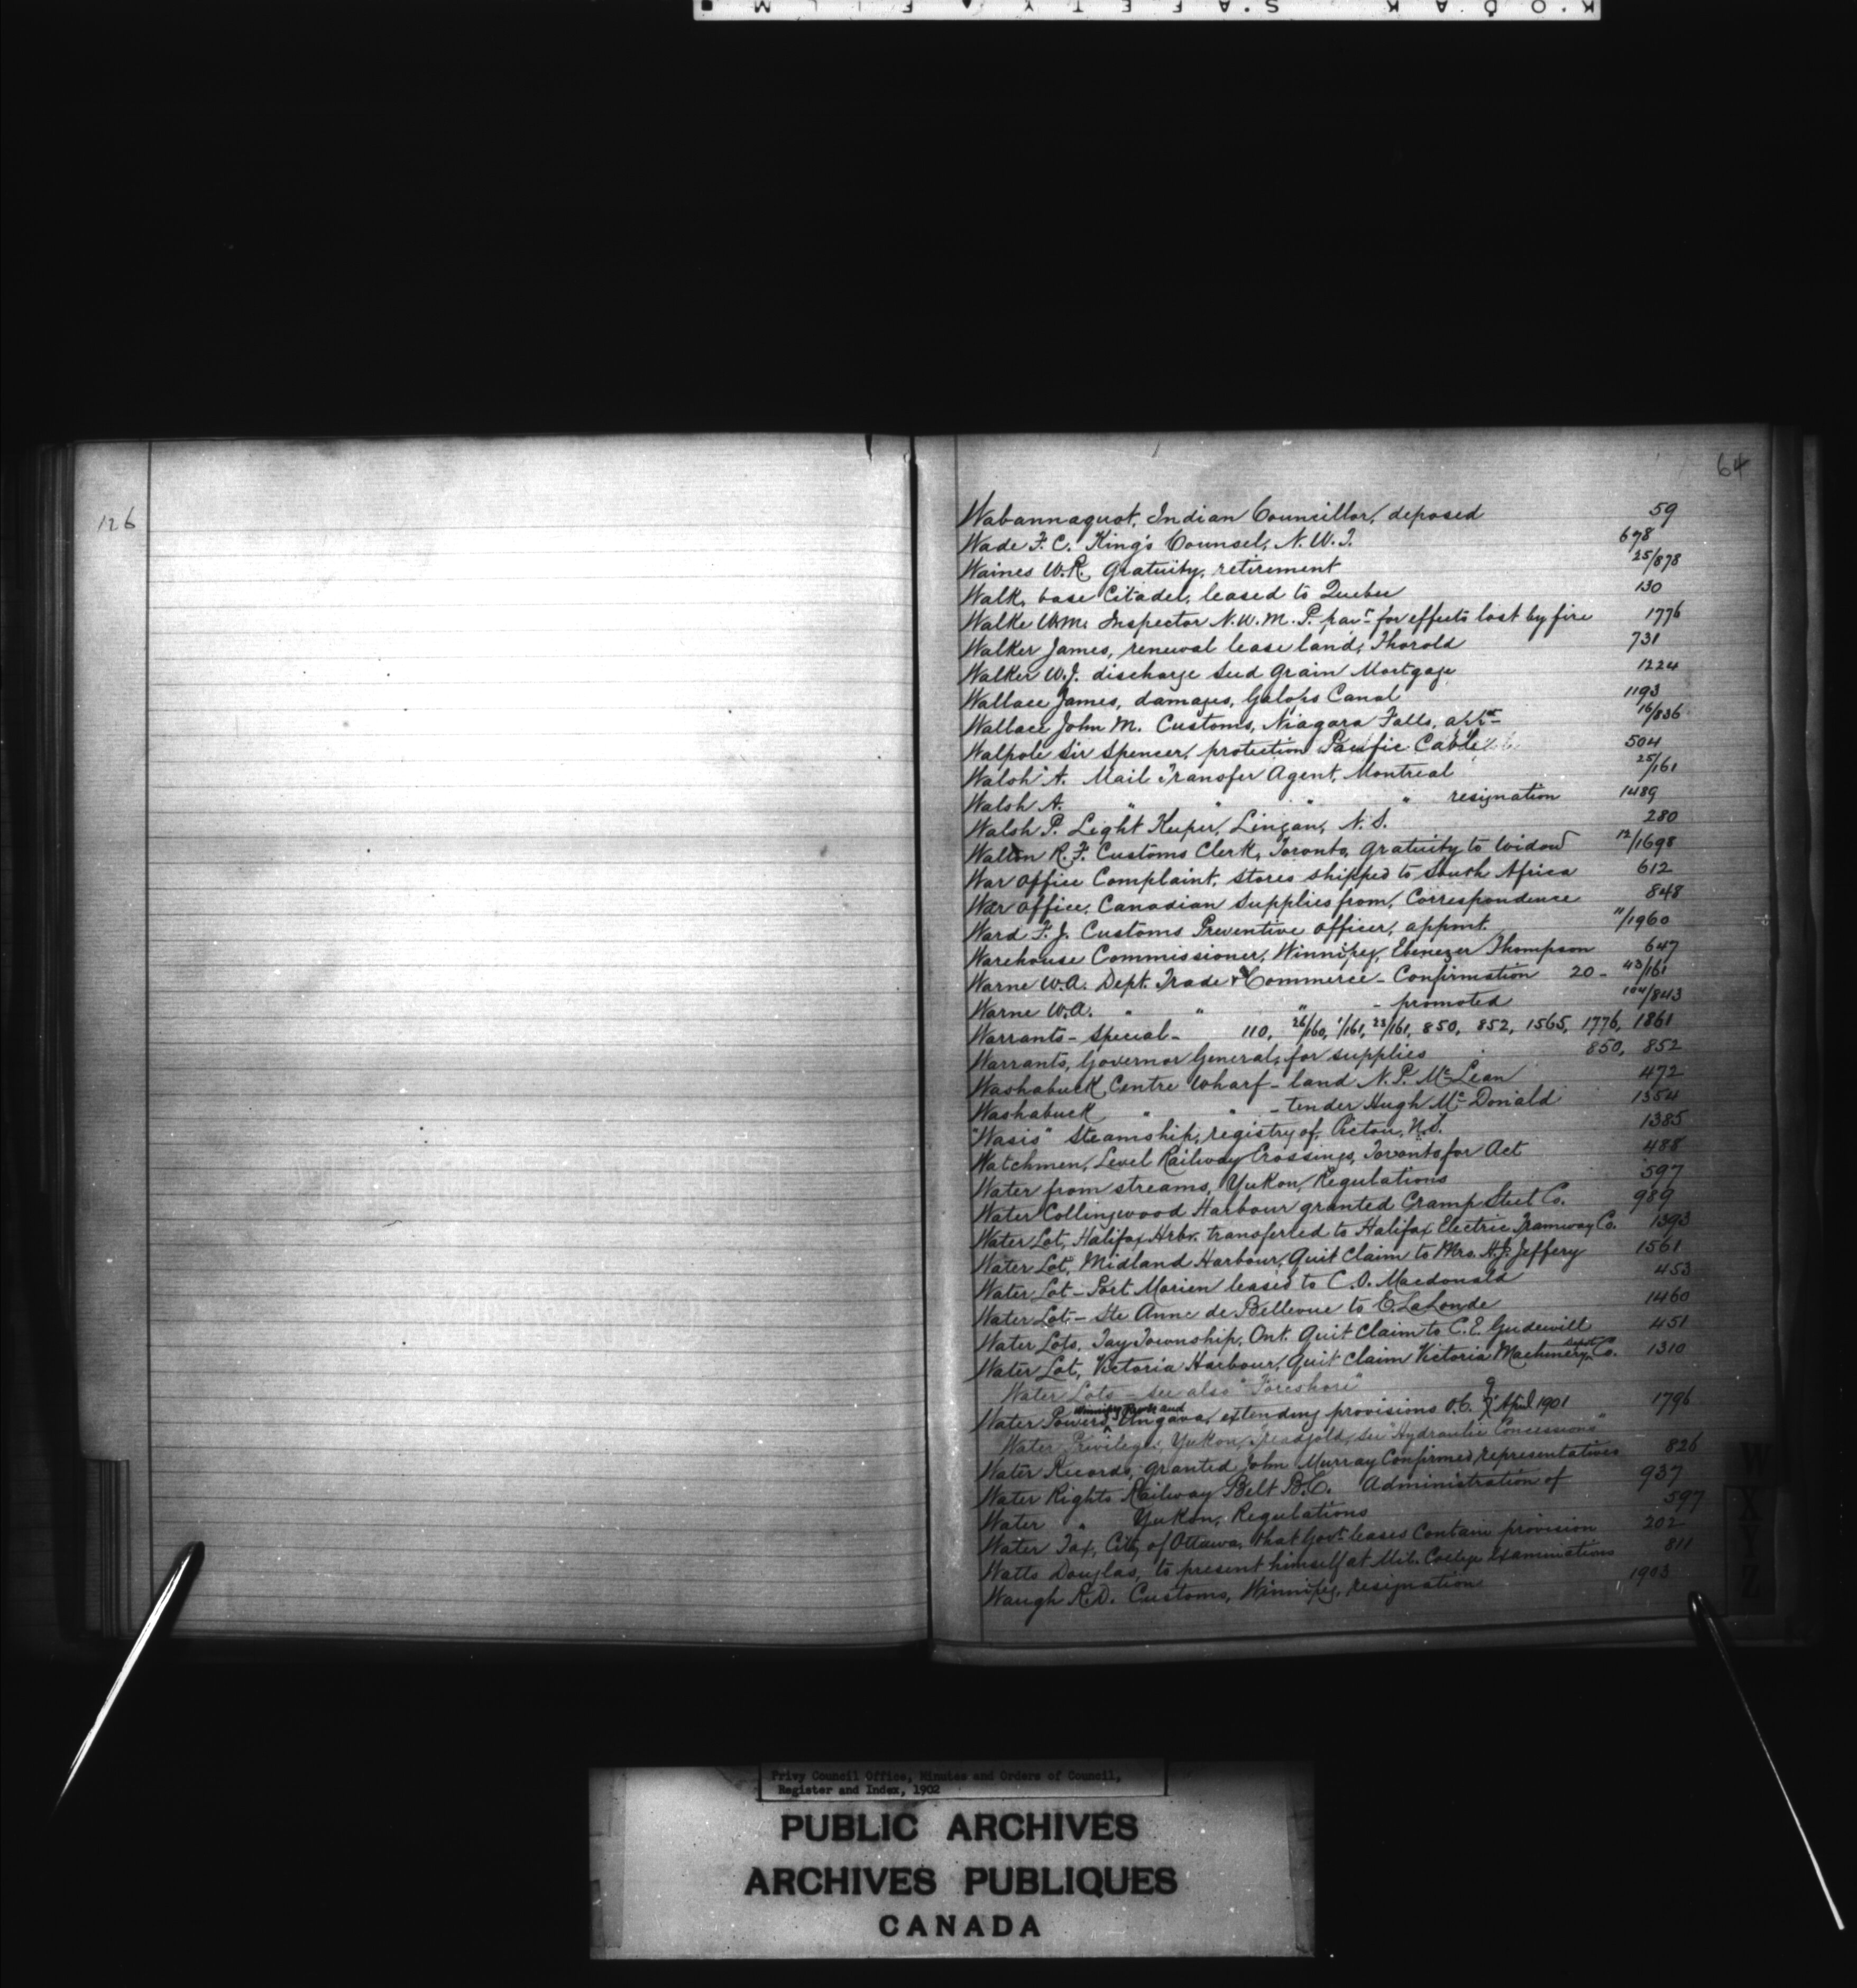 KODAK SAFETY FILM
126
64
Wabannaquot, Indian Councillor, deposed 59
Wade F. C. King's Counsel, N. W. T. 678
Waines W. R. gratuity, retirement 25/878
Walk, base Citadel, leased to Quebec 130
Walke Wm. Inspector N. W. M. P. for effects lost by fire 1776
Walker James, renewal lease land, Thorold 731
Walker W. J. discharge Seed Grain Mortgage 1224
Wallace James, damages, Galops Canal 1193
Wallace John M. Customs, Niagara Falls, 16/836
Walpole Sir Spencer, protection Pacific Cable 504
Walsh A. Mail Transfer Agent, Montreal 25/161
Walsh A. " " " " resignation 1489
Walsh P. Light Keeper, Lingan, N. S. 280
Walton R. F. Customs Clerk, Toronto, gratuity to widow 12/1698
War Office Complaint, stores shipped to South Africa 612
War Office, Canadian supplies from, Correspondence 848
Ward F. J. Customs Preventive Officer, appmt. 11/1960
Warehouse Commissioner, Winnipeg, Ebenezer Thompson 647
Warne W. A. Dept. Trade & Commerce - Confirmation 20 - 43/161
Warne W. A. " " " - promoted 104/843
Warrants - Special - 110, 26/160, 1/161, 23/161, 850, 852, 1565, 1776, 1861
Warrants, Governor General, for supplies 850, 852
Washabuck Centre Wharf - land N. P. McLean 472
Washabuck " " - tender Hugh McDonald 1354
"Wasis" Steamship, registry of, Pictou, N. S. 1385
Watchmen, Level Railway Crossings, Toronto, for Act 488
Water from streams, Yukon, Regulations 597
Water Collingwood Harbour granted Cramp Steel Co. 989
Water Lot, Halifax Hrbr. transferred to Halifax Electric Tramway Co. 1393
Water Lot, Midland Harbour, Quit Claim to Mrs. H. J. Jeffery 1561
Water Lot - Port Morien leased to C. D. Macdonald 453
Water Lot - Ste Anne de Bellevue to E. LaLonde 1460
Water Lots, Tay Township, Ont. Quit Claim to C. E. Gudewill 451
Water Lot, Victoria Harbour, Quit Claim Victoria Machinery Depot Co. 1310
Water Lots - see also "Foreshore"
Water Powers, Ungava, extending provisions O. C. 9 April 1901 1796
Water Privileges, Yukon, Treadgold, see "Hydraulic Concessions"
Water Records, granted John Murray Confirmed, representatives 826
Water Rights Railway Belt B. C. Administration of 937
Water " Yukon, Regulations 597
Water Tax, City of Ottawa, that Govt. leases contain provision 202
Watts Douglas, to present himself at Mil. College Examinations 811
Waugh R. D. Customs, Winnipeg, resignation 1903
W
X
Y
Z
Privy Council Office, Minutes and Orders of Council,
Register and Index, 1902
PUBLIC ARCHIVES
ARCHIVES PUBLIQUES
CANADA